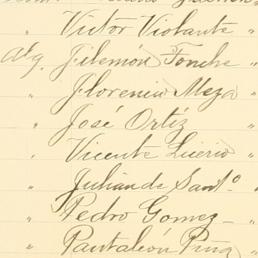 Victor Violante "
Alg. Filemón Fonche
" Florencio Meza
" José Ortíz "
" Vicente Licerio "
" Julian de Santo "
" Pedro Gomez "
" Pantaleón Piña "